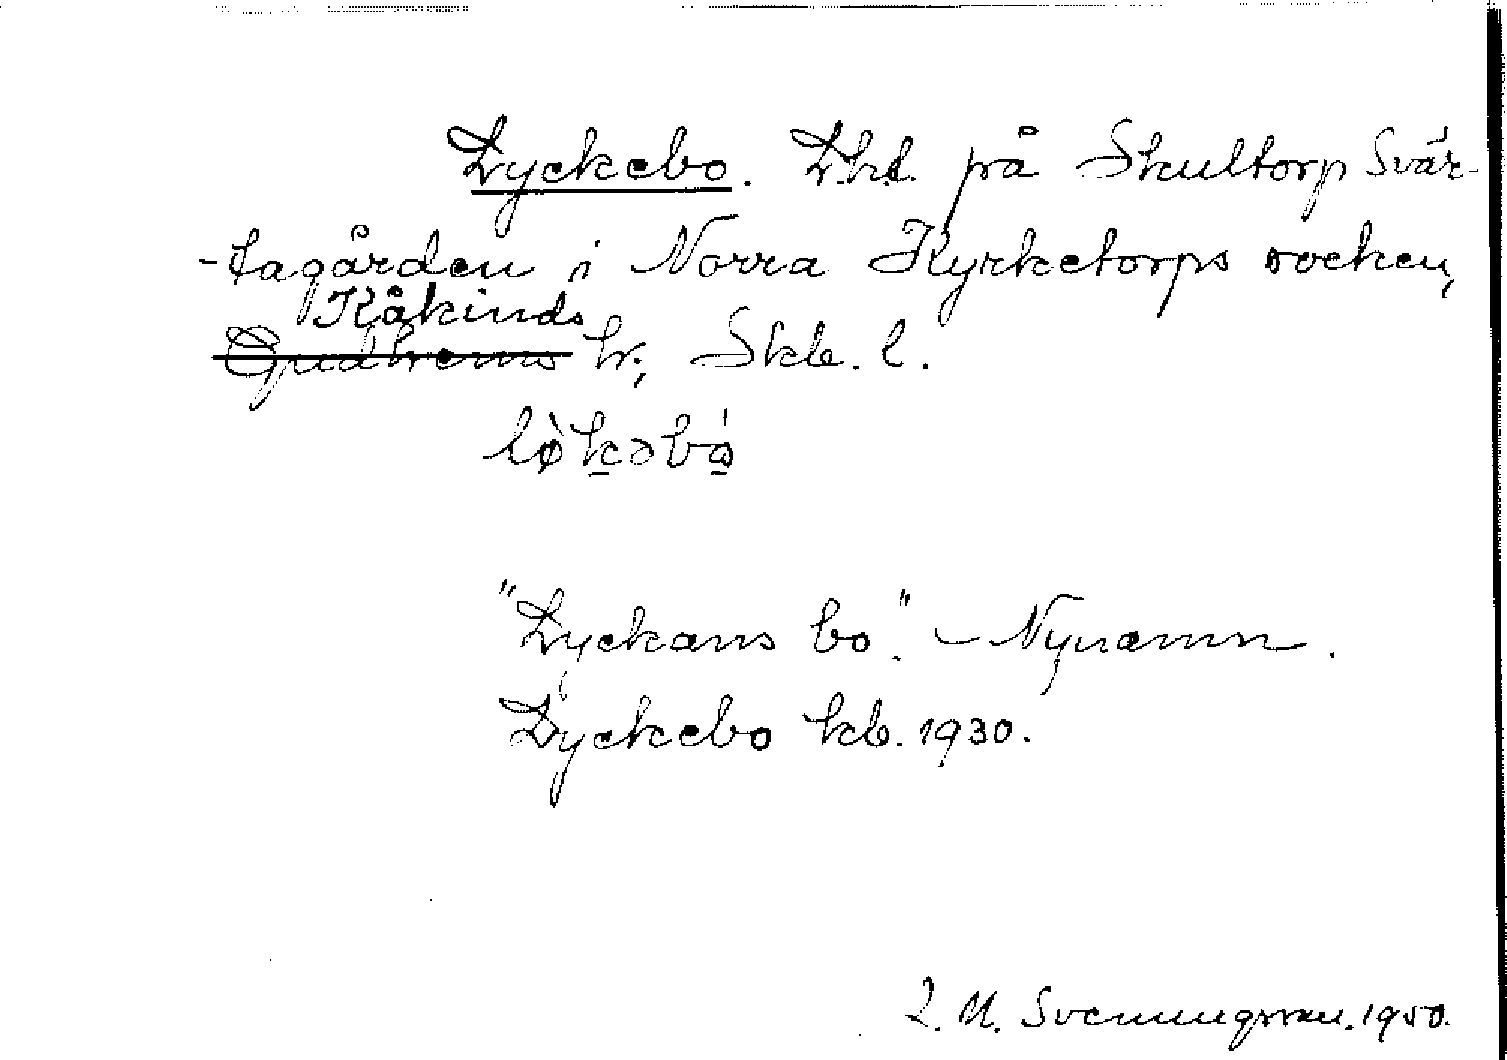 Lyckebo. Lht. på Skultorp Svär-
-tagården i Norra Kyrketorps socken,
Kåkinds
Gudhems hr, Skb. l.
lø̀kəbó̠
"Lyckans bo." – Nynamn.
Lyckebo kb. 1930.
L. M. Svenungsson. 1950.